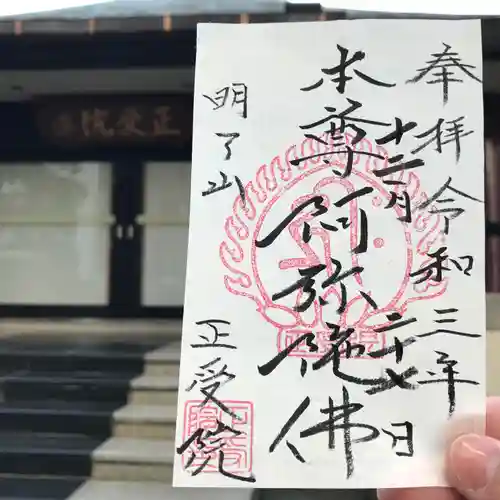 奉拝令和三年
十二月二十七日
本尊阿弥陀佛
明了山
正受院
正受院